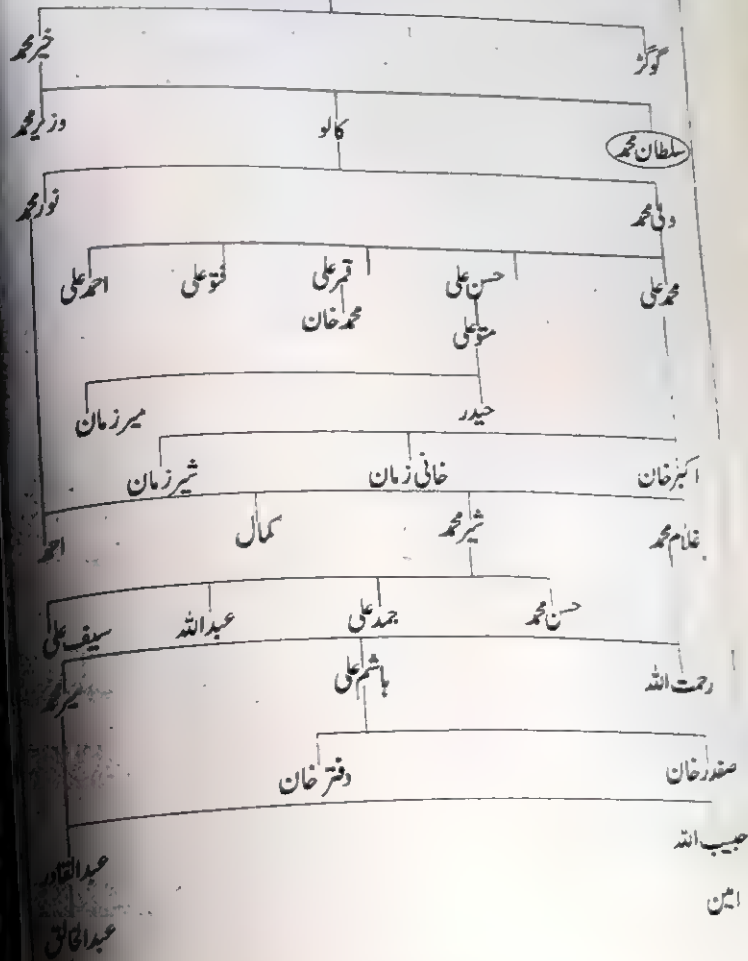 گوگڑ خیر محمد
سلطان محمد کالو وزیر محمد
ولی محمد نور محمد
محمد علی حسن علی قمر علی فتو علی احمد علی
متو علی محمد خان
حیدر میر زمان
اکبر خان خانی زمان شیر زمان
غلام محمد شیر محمد کمال احمد
حسن محمد جمد علی عبداللہ سیف علی
رحمت اللہ ہاشم علی میر محمد
صفدر خان دفتر خان
حبیب اللہ عبدالقادر
امین عبدالخالق